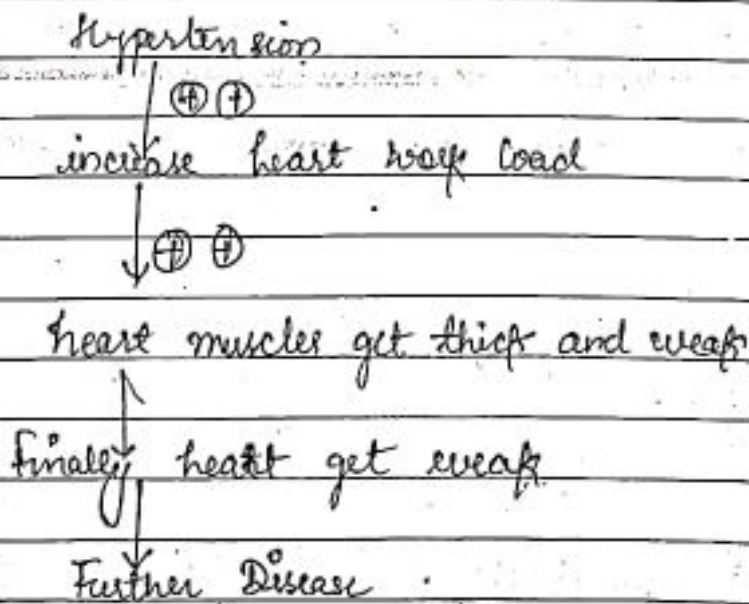 Hypertension
⊕ ⊕
increase heart work load
⊕ ⊕
heart muscles get thick and weak
Finally heart get weak
Further Disease .